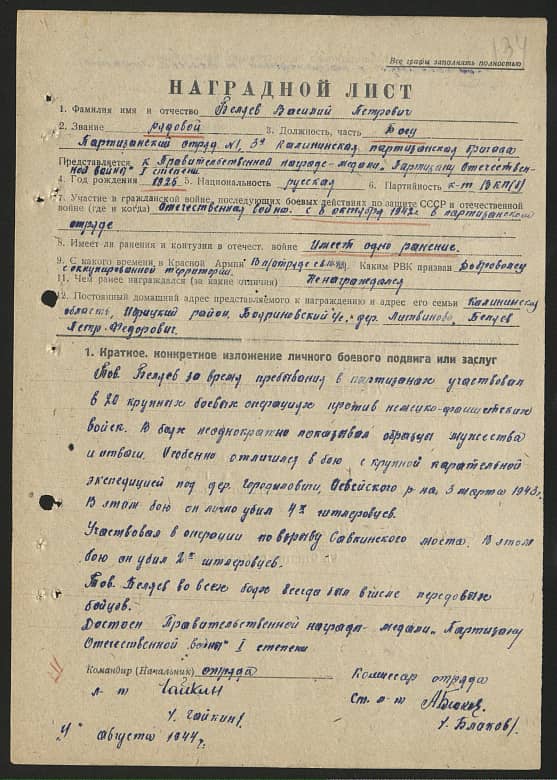 134
Все графы заполнять полностью
НАГРАДНОЙ ЛИСТ
1. Фамилия имя и отчество Беляев Василий Петрович
2. Звание рядовой 3. Должность, часть Боец
Партизанский отряд №1, 3я Калининская партизанская бригада
Представляется к Правительственной награде - медали „Партизану Отечествен-
ной войны" I степени
4. Год рождения 1925 5. Национальность русская 6. Партийность к-т ВКП(б)
7. Участие в гражданской войне, последующих боевых действиях по защите СССР и отечественной
войне (где и когда) Отечественная война. с 8 октября 1942г. в партизанском
отряде
8. Имеет ли ранения и контузия в отечест. войне Имеет одно ранение.
9. С какого времени в Красной Армии В п/отряде с Каким РВК призван Доброволец
с оккупированной территории.
11. Чем ранее награждался (за какие отличия) Ненаграждался
12. Постоянный домашний адрес представляемого к награждению и адрес его семьи Калининская
область, Идрицкий район, с/с. дер. Литвиново, Беляев
Петр Федорович.
1. Краткое, конкретное изложение личного боевого подвига или заслуг
Тов. Беляев за время пребывания в партизанах участвовал
в 20 крупных боевых операциях против немецко-фашистских
войск. В боях неоднократно показывал образцы мужества
и отваги. Особенно отличился в бою с крупной карательной
экспедицией под дер. Освейского р-на, 3 марта 1943г.
В этом бою он лично убил 4х гитлеровцев.
Участвовал в операции по взрыву Савкинского моста. В этом
бою он убил 2х гитлеровцев.
Тов. Беляев во всех боях всегда был в числе передовых
бойцов.
Достоен Правительственной награды - медали „Партизану
Отечественной войны" I степени
Командир (Начальник) отряда
Комиссар отряда
л-т Чайкин
Ст. л-т
/Чайкин/.
/Блаков/.
августа 1944г.